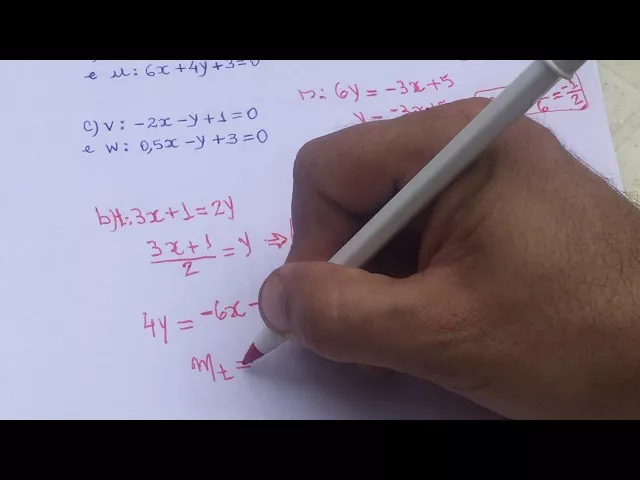 e u: 6x+4y+3=0
c) v: -2x-y+1=0
e w: 0,5x-y+3=0
r: 6y = -3x+5
y = -3x+5
6 = -1/2
b) t: 3x+1=2y
(3x+1)/2 = y ⇒
4y = -6x-
m_t =